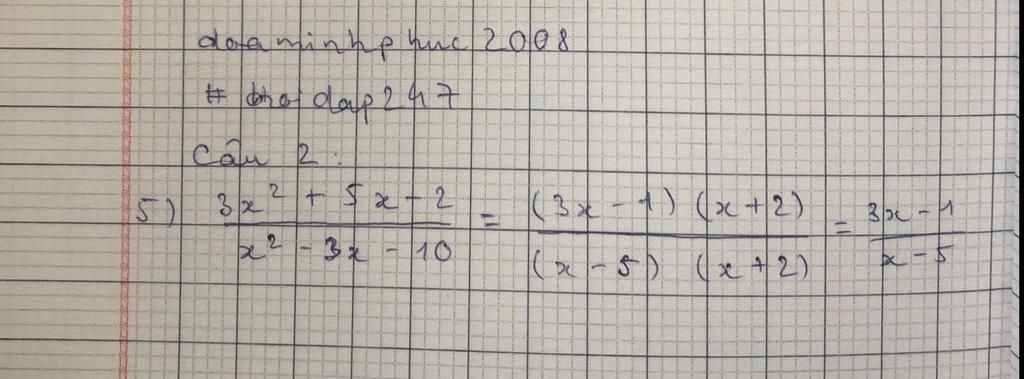 doaminhphuc2008
# hoidap247
Câu 2:
5) (3x² + 5x - 2)/(x² - 3x - 10) = ((3x - 1)(x + 2))/((x - 5)(x + 2)) = (3x - 1)/(x - 5)